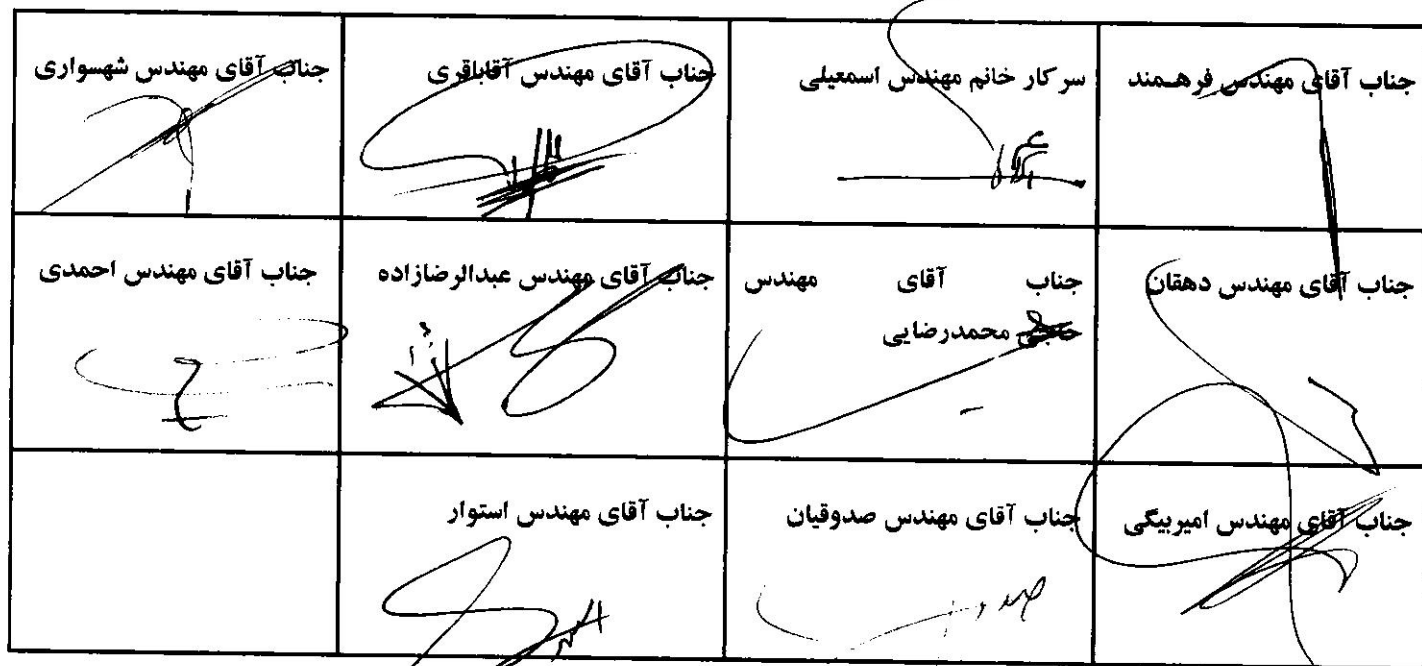 جناب آقای مهندس فرهـمند
سرکار خانم مهندس اسمعیلی
جناب آقای مهندس آقاباقری
جناب آقای مهندس شهسواری
جناب آقای مهندس دهقان
جناب آقای مهندس
محمدرضایی
جناب آقای مهندس عبدالرضازاده
جناب آقای مهندس احمدی
جناب آقای مهندس امیربیگی
جناب آقای مهندس صدوقیان
جناب آقای مهندس استوار